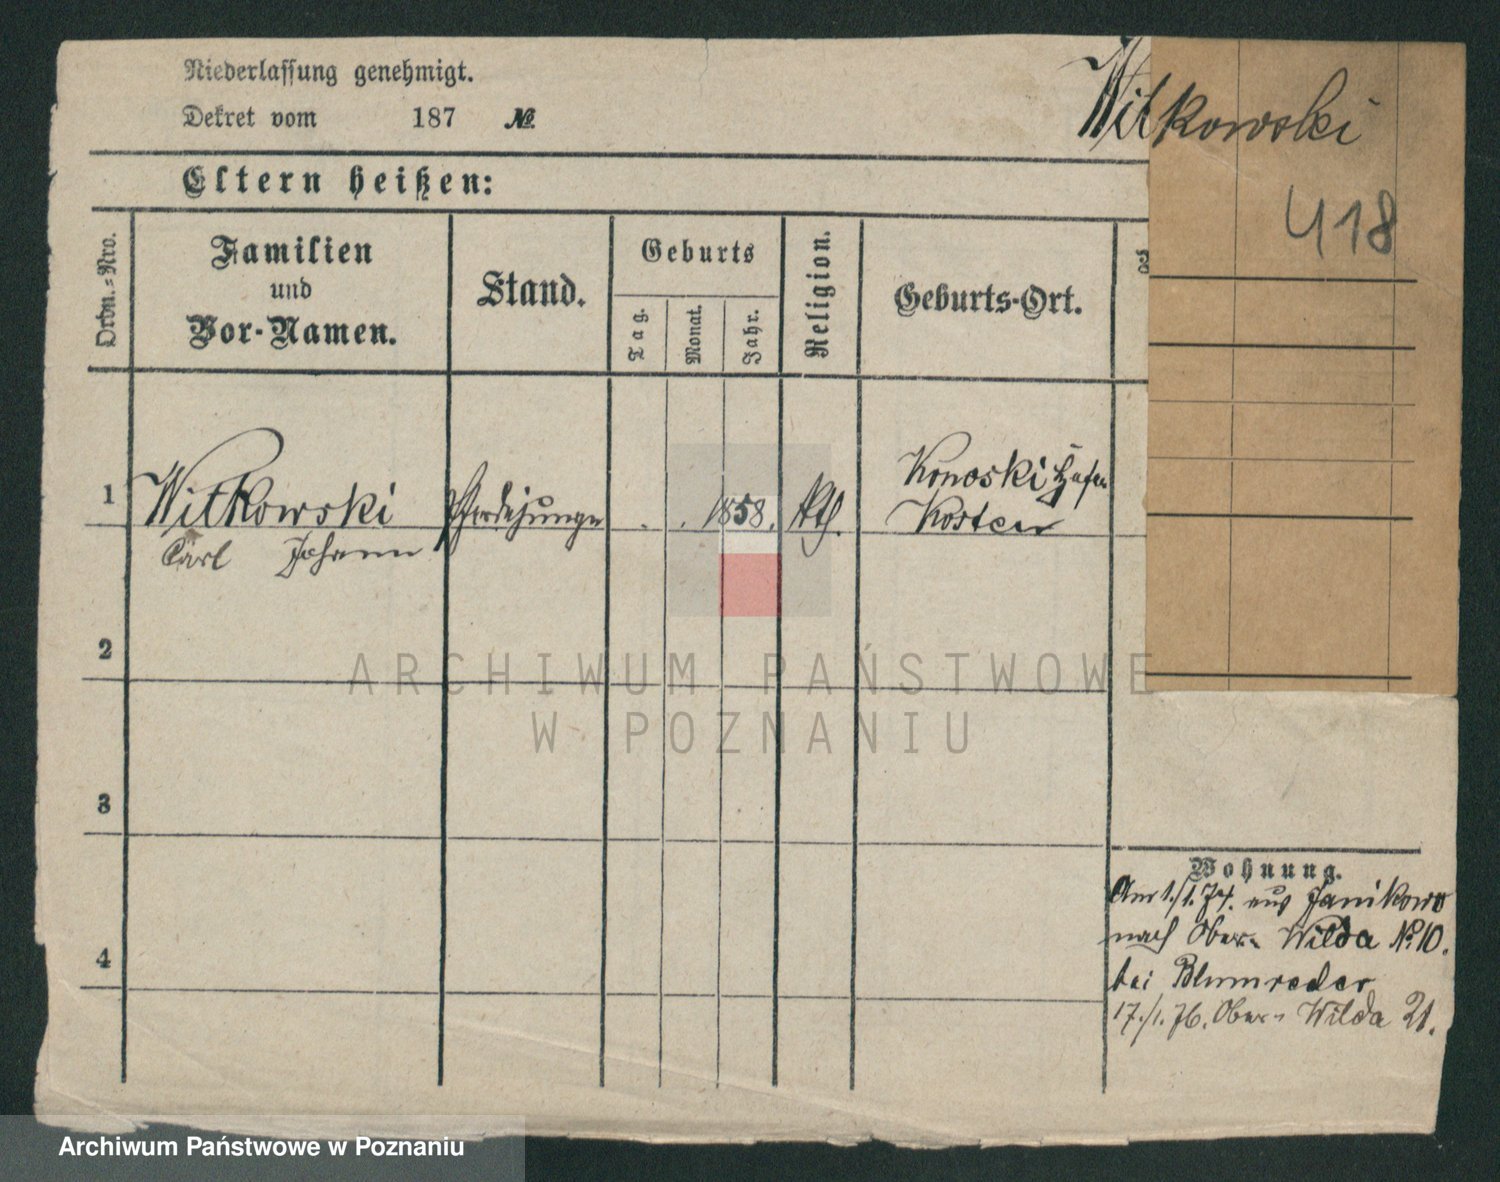 Niederlassung genehmigt.
Dekret vom 187 №
Witkowski
418
Eltern heißen:
Ordn.=Nro.
Familien
und
Vor-Namen.
Stand.
Geburts
Tag.
Monat.
Jahr.
Religion.
Geburts-Ort.
Konoski
1 Witkowski Pferdejunge . . 1858. Kth. Kosten
Carl Johann
2
3
4
Wohnung.
Am 1./1. 74. aus Janikowo
nach Ober- Wilda № 10.
bei Blumreder
17./1. 76. Ober- Wilda 21.
ARCHIWUM PAŃSTWOWE
W POZNANIU
Archiwum Państwowe w Poznaniu